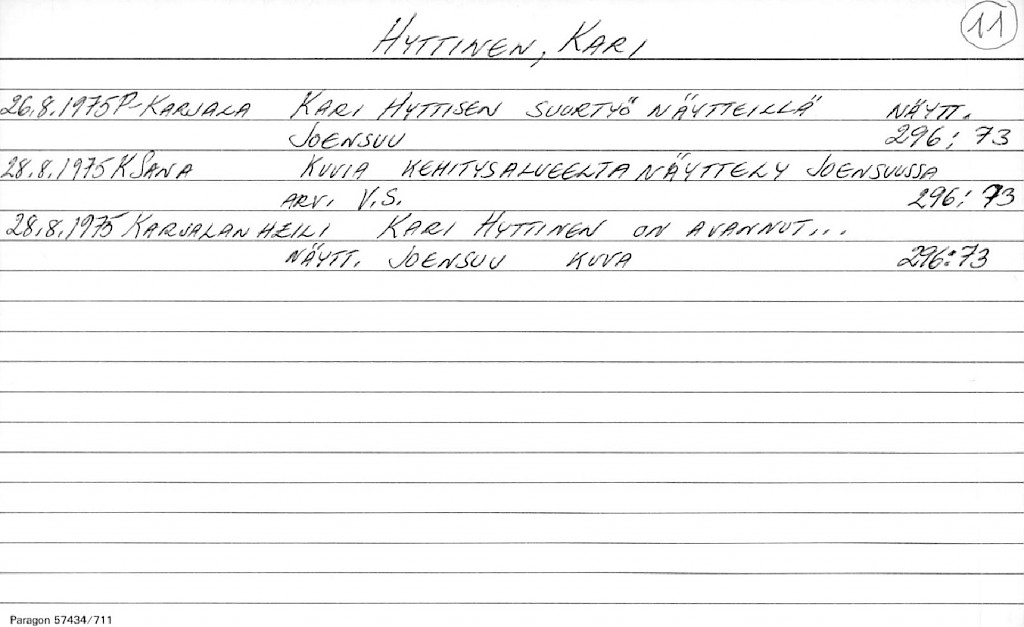 11
HYTTINEN, KARI
26.8.1975 P-KARJALA KARI HYTTISEN SUURTYÖ NÄYTTEILLÄ NÄYTT.
JOENSUU 296: 73
28.8.1975 K SANA KUVIA KEHITYSALUEELTA NÄYTTELY JOENSUUSSA
ARV. V.S. 296: 73
28.8.1975 KARJALAN HEILI KARI HYTTINEN ON AVANNUT...
NÄYTT. JOENSUU KUVA 296:73
Paragon 57434/711